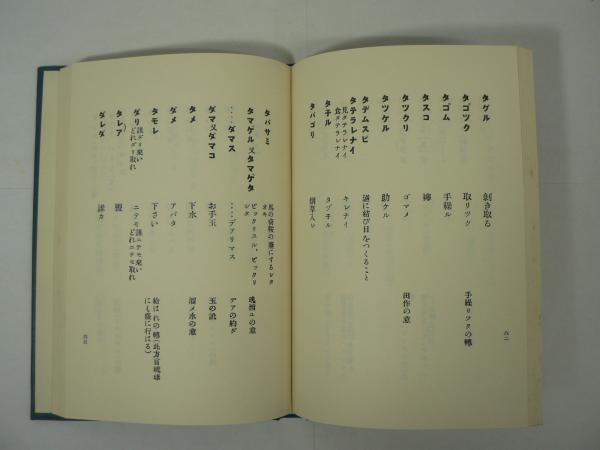 タグル 剝き取る
タゴツク 取リツク 手繰リツクの轉
タゴム 手繰ル
タスコ 襷
タツクリ ゴマメ 田作の意
タツケル 助ケル
タデムスビ 逆に結び目をつくること
タテラレナイ キレナイ
見タテラレナイ
食タテラレナイ
タチル タヅチル
タバゴリ 烟草入レ
六二
タバサミ 馬の背鞍の臺にするレタ
タマゲル 又タマゲタ ビックリスル、ビックリ 魂消ユの意
シタ
‥‥ダマス ‥‥デアリマス デアの約ダ
ダマ又ダマコ お手玉 玉の訛
タメ 下水 溜メ水の意
ダメ アバタ
タモレ 下さい 給はれの轉(此方言琉球
にも盛に行はる)
ダリ 誰ダリ來い ニテモ 誰ニテモ來い
どれダリ取れ どれニテモ取れ
タレア 盥
ダレダ 誰カ
六三